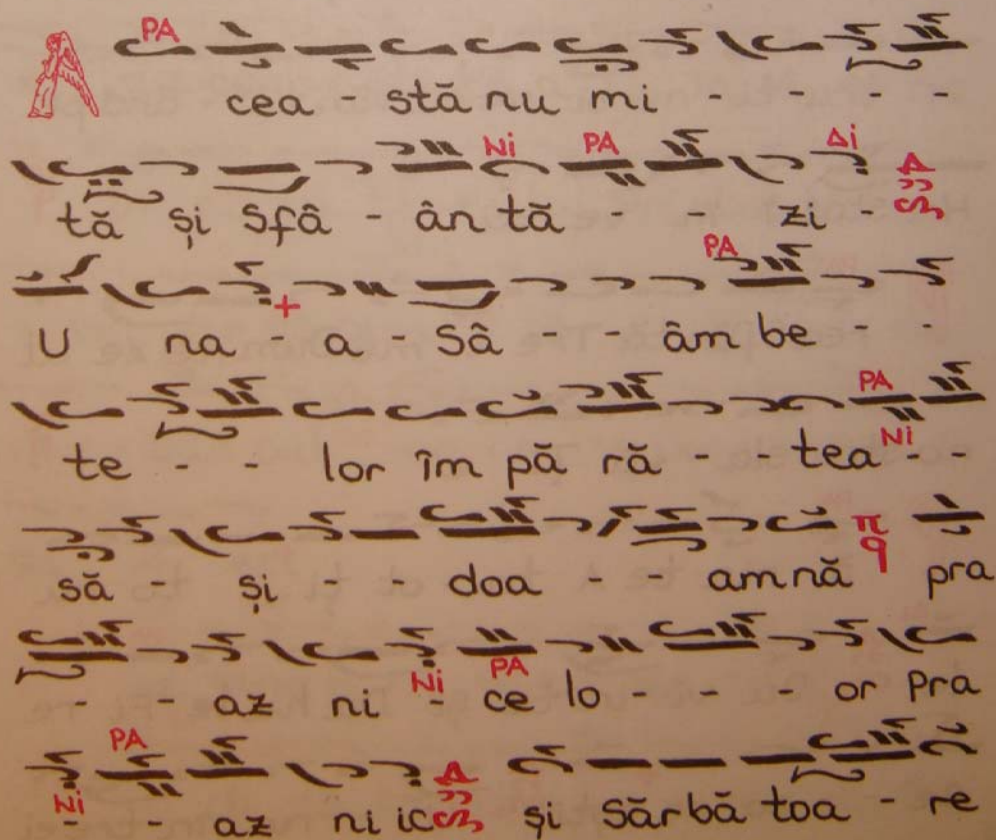 PA
A cea - stă nu mi - - - - -
Ni PA Δi
tă și Sfâ - ân tă - - zi -
PA
U na - a - Sâ - - âm be - -
PA
te - - lor îm pă ră - - tea - -
Ni
să - și - - doa - - am nă π q pra
- - az ni - ce lo - - - or Pra
Ni PA
PA
- - az ni ic și Sărbă toa - re
Ni